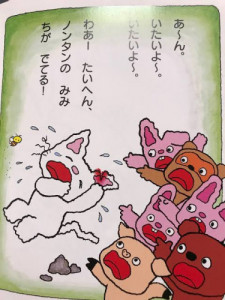 あ〜ん。
いたいよ〜。
いたいよ〜。
わあー たいへん、
ノンタンの みみ
ちが でてる!